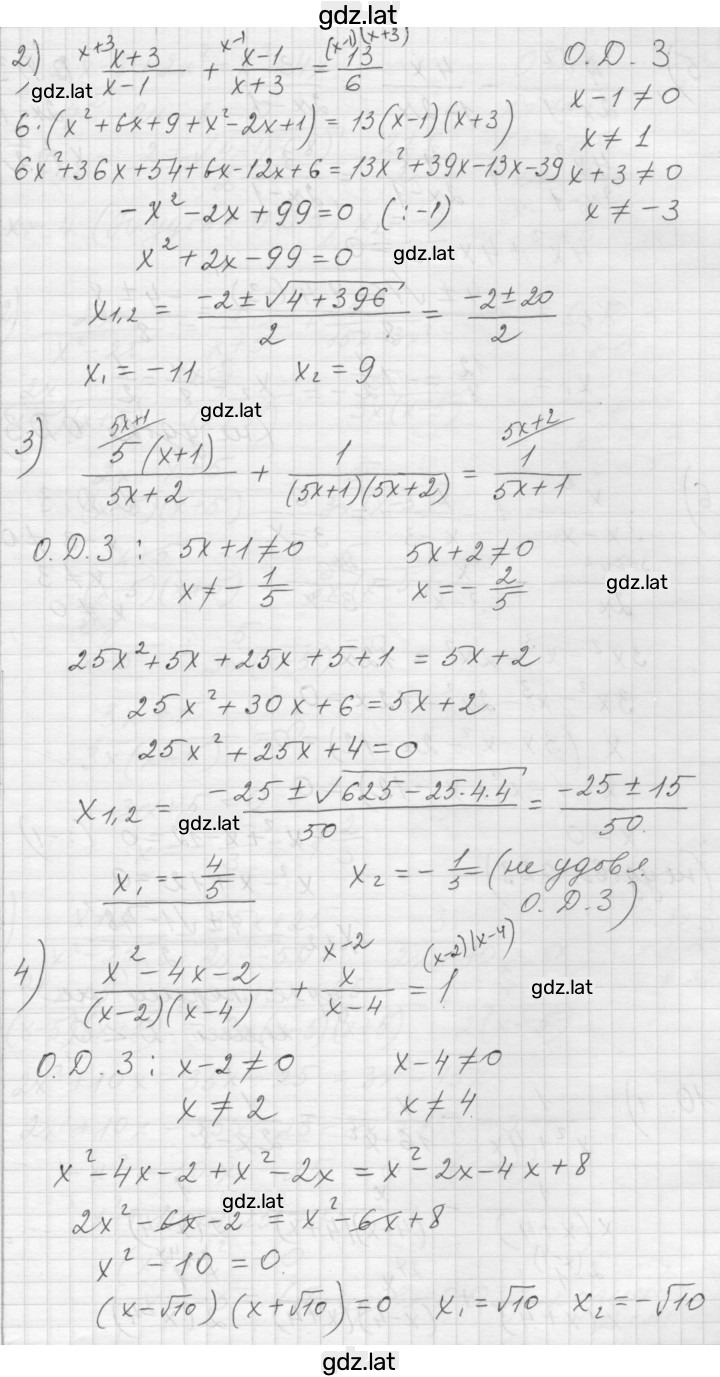 gdz.lat
2) x+3 (x+3)/(x-1) + x-1 (x-1)/(x+3) = (x-1)(x+3) 13/6 О.Д.З
gdz.lat
x-1≠0
6·(x²+6x+9+x²-2x+1) = 13(x-1)(x+3)
x≠1
6x²+36x+54+6x-12x+6=13x²+39x-13x-39 x+3≠0
-x²-2x+99=0 (:-1) x≠-3
x²+2x-99=0 gdz.lat
x₁,₂ = (-2±√(4+396))/2 = (-2±20)/2
x₁=-11 x₂=9
gdz.lat
3) 5x+1 5(x+1)/(5x+2) + 1/((5x+1)(5x+2)) = 5x+2 1/(5x+1)
О.Д.З: 5x+1≠0 5x+2≠0
x≠-1/5 x=-2/5 gdz.lat
25x²+5x+25x+5+1 = 5x+2
25x²+30x+6=5x+2
25x²+25x+4=0
x₁,₂ = (-25±√(625-25·4·4))/50 = (-25±15)/50
gdz.lat
x₁=-4/5 x₂=-1/5 (не удовл.
О.Д.З)
4) (x²-4x-2)/((x-2)(x-4)) + x-2 x/(x-4) = (x-2)(x-4) 1 gdz.lat
О.Д.З: x-2≠0 x-4≠0
x≠2 x≠4
x²-4x-2+x²-2x = x²-2x-4x+8
gdz.lat
2x²-6x-2 = x²-6x+8
x²-10=0
(x-√10)(x+√10)=0 x₁=√10 x₂=-√10
gdz.lat